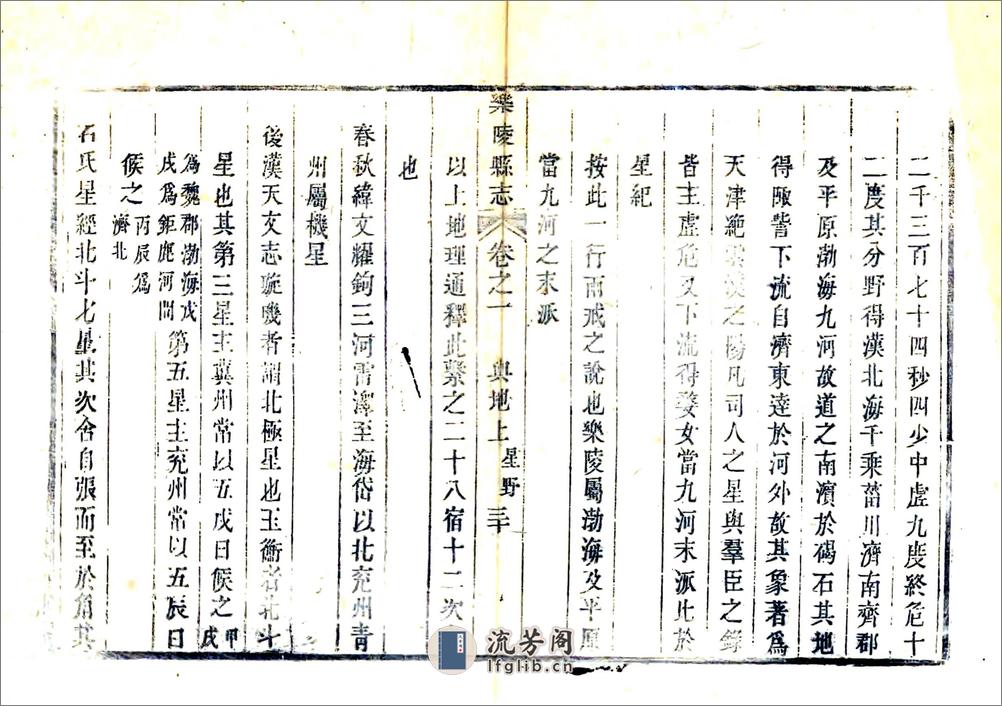 二千三百七十四秒四少中虛九度終危十
二度其分野得漢北海千乘菑川濟南齊郡
及平原渤海九河故道之南濱於碣石其地
得陬訾下流自濟東達於河外故其象著為
天津絕雲漢之陽凡司人之星與羣臣之錄
皆主虛危又下流得婺女當九河末派比於
星紀
按此一行兩戒之說也樂陵屬渤海及平原
當九河之末派
樂陵縣志 卷之一 輿地上 星野 三十
以上地理通釋此繫之二十八宿十二次
也
春秋緯文耀鉤三河雷澤至海岱以北兗州青
州屬機星
後漢天文志璇璣者謂北極星也玉衡者北斗
星也其第三星主冀州常以五戌日候之甲戌
為魏郡渤海戊
戌為鉅鹿河間第五星主兗州常以五辰日
候之丙辰為
濟北
石氏星經北斗七星其次舍自張而至於角其
流芳阁
lfglib.cn